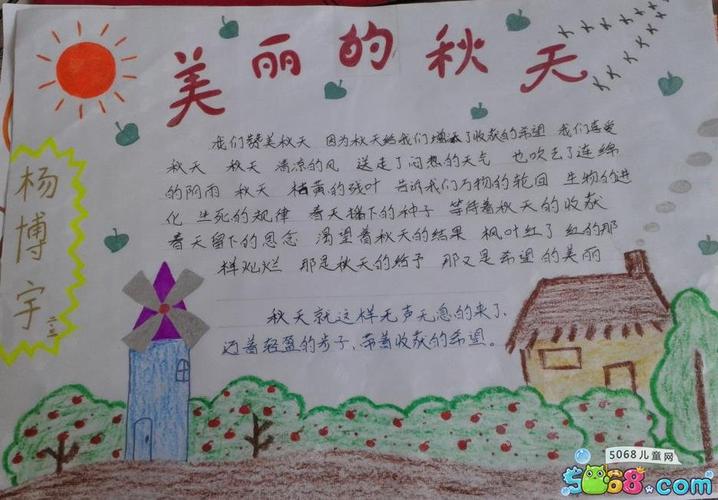 美丽的秋天
杨博宇
二三
我们赞美秋天 因为秋天给我们增添了收获的希望 我们喜爱
秋天 秋天 清凉的风 送走了闷热的天气 也吹去了连绵
的阴雨 秋天 枯黄的残叶 告诉我们万物的轮回 生物的进
化 生死的规律 春天播下的种子 等待着秋天的收获
春天留下的思念 渴望着秋天的结果 枫叶红了 红的那
样灿烂 那是秋天的给予 那又是希望的美丽
秋天就这样无声无息的来了,
迈着轻盈的步子、带着收获的希望。
5068儿童网
5068.com